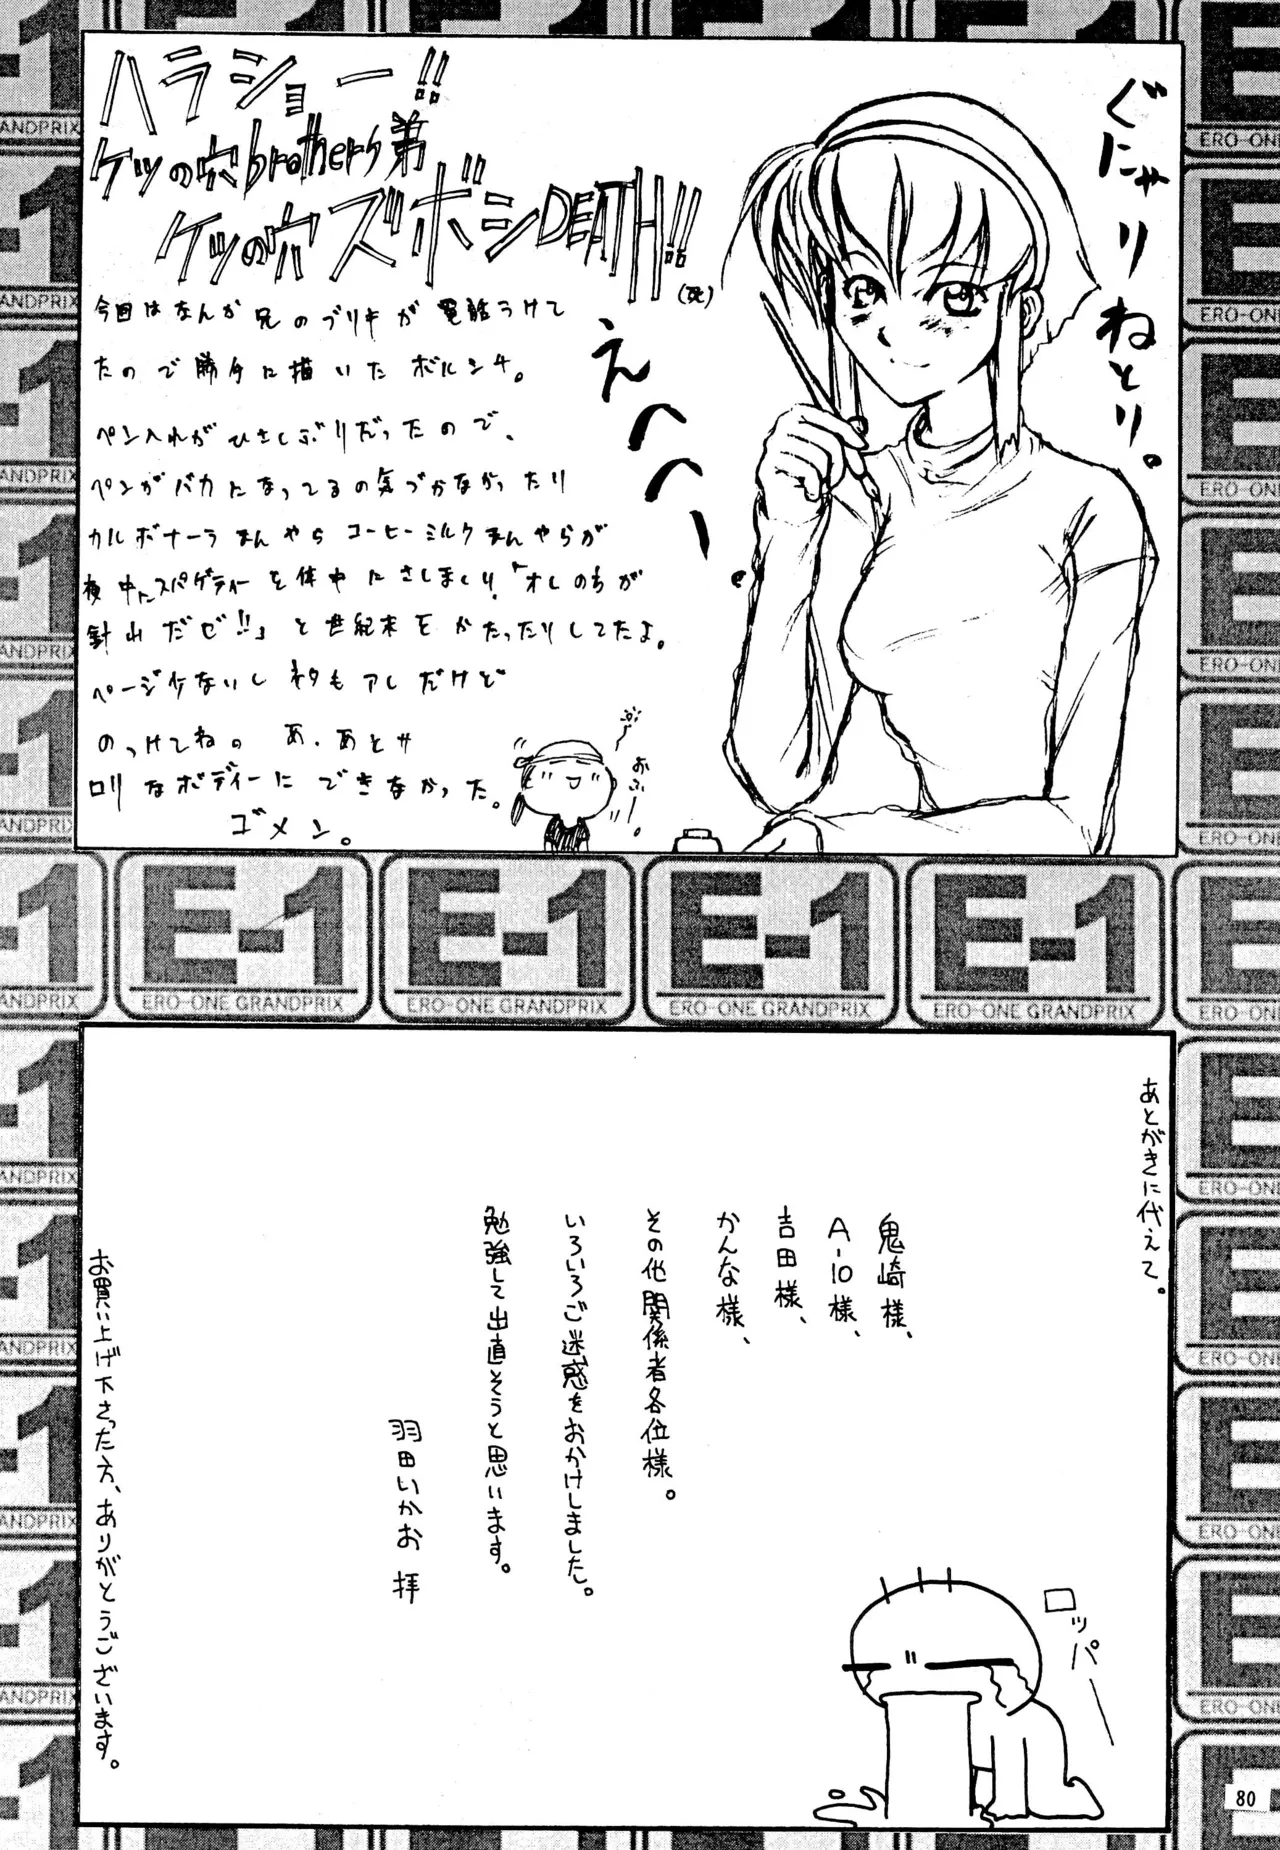 ハラショー!!
ケツの穴brothers弟
ケツの穴ズボシDEATH!!
(死)
今回はなんか兄のブリキが電話うけて
たので勝手に描いたボルシチ。
ペン入れがひさしぶりだったので、
ペンがバカになってるの気づかなかったり
カルボナーラまんやらコーヒーミルクまんやらが
夜中にスパゲティーを体中にさしまくり「オレのちが
針山だぜ!!」と世紀末をかたったりしてたよ。
ページ少ないしネタもアレだけど
のっけてね。あ、あとサ
ロリなボディーにできなかった。
ゴメン。
ぐにゃりねとり。
えへへー
おふー。
あとがきに代えて。
鬼崎様、
A-10様、
吉田様、
かんな様、
その他関係者各位様。
いろいろご迷惑をおかけしました。
勉強して出直そうと思います。
羽田いかお 拝
お買い上げ下さった方、ありがとうございます。
ロッパー
E-1
ERO-ONE GRANDPRIX
E-1
ERO-ONE GRANDPRIX
E-1
ERO-ONE GRANDPRIX
E-1
ERO-ONE GRANDPRIX
80